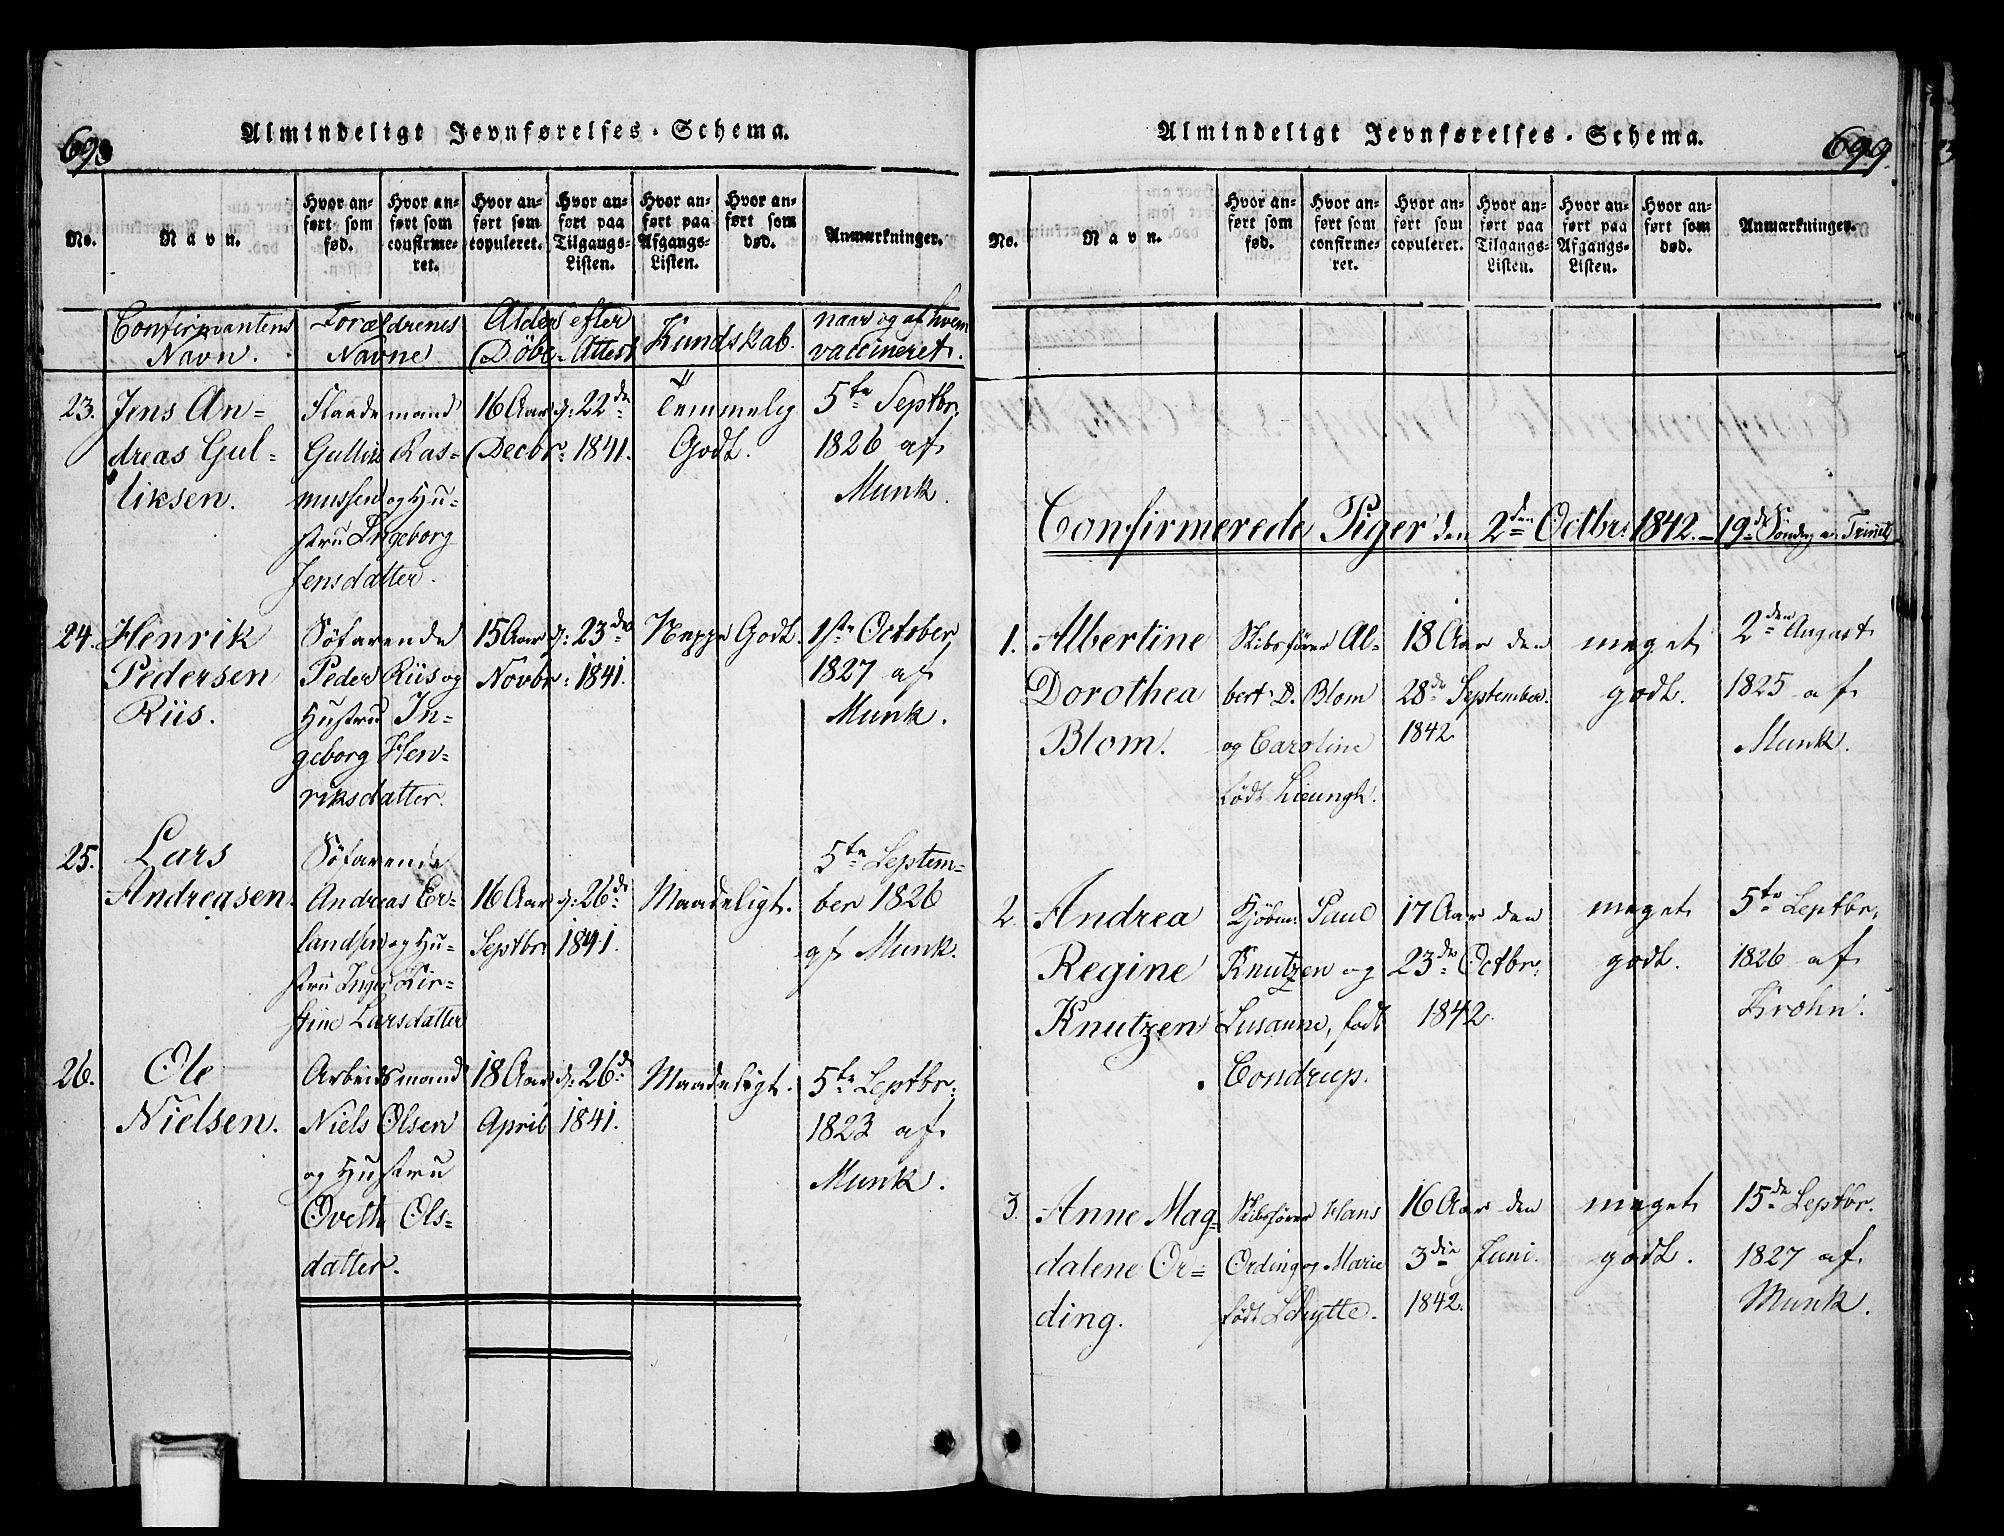 698
Almindeligt Jevnførelses-Schema.
No.
Navn.
Hvor an-
ført som
fød.
Hvor an-
ført som
confirme-
ret.
Hvor an-
ført som
copuleret.
Hvor an-
ført paa
Tilgangs-
Listen.
Hvor an-
ført paa
Afgangs-
Listen.
Hvor an-
ført som
død.
Anmærkninger.
Confirmantens
Navn.
Forældrenes
Navne
Alder efter
Döbe-Attest
Kundskab.
naar og af hvem
vaccineret.
23. Jens An-
dreas Gul-
liksen.
Flaademand
Gullik Ras-
mussen og Hu-
stru Ingeborg
Jensdatter.
16 Aar d: 22de
Decbr: 1841.
Temmelig
Godt.
5te Septbr.
1826 af
Munk.
24. Henrik
Pedersen
Riis.
Söfarende
Peder Riis og
Hustru In-
geborg Hen-
riksdatter.
15 Aar d: 23de
Novbr: 1841.
Neppe Godt.
1ste October
1827 af
Munk.
25. Lars
Andreasen.
Söfarende
Andreas Er-
landsen og Hu-
stru Inger Kir-
stine Larsdatter
16 Aar d: 26de
Septbr 1841.
Maadeligt.
5te Septem-
ber 1826
af Munk.
26. Ole
Nielsen.
Arbeidsmand
Niels Olsen
og Hustru
Ols-
datter.
18 Aar d: 26de
April 1841.
Maadeligt.
5te Septbr:
1823 af
Munk.
Almindeligt Jevnførelses-Schema.
699.
No.
Navn.
Hvor an-
ført som
fød.
Hvor an-
ført som
confirme-
ret.
Hvor an-
ført som
copuleret.
Hvor an-
ført paa
Tilgangs-
Listen.
Hvor an-
ført paa
Afgangs-
Listen.
Hvor an-
ført som
død.
Anmærkninger.
Confirmerede Piger den 2den Octbr: 1842. - 19de Söndag e. Trinit
1. Albertine
Dorothea
Blom.
Skibsförer Al-
bert D. Blom
og Caroline
födt Lieungh.
18 Aar den
28de September
1842
meget
godt.
2den August
1825 af
Munk.
2. Andrea
Regine
Knutzen
Kjöbm: Paul
Knutzen og
Susanne, födt
Condrup.
17 Aar den
23de Octbr.
1842.
meget
godt.
5te Septbr.
1826 af
Krohn.
3. Anne Mag-
dalene Or-
ding.
Skibsförer Hans
Ording og Marie
födt Schytte.
16 Aar den
3die Juni.
1842.
meget
godt.
15de Septbr.
1827 af
Munk.